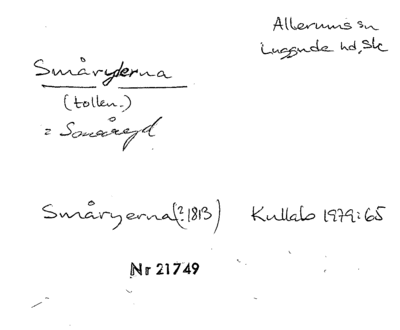 Allerums sn
Luggude hd, Sk
Småryderna
(tollen.)
= Småryd
Småryerna (? 1813) Kullabo 1979:65
Nr 21749